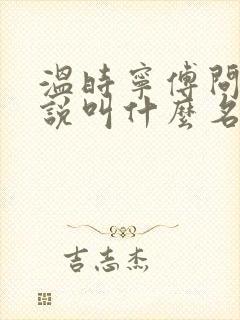 溫時寧傅問
說叫什麼名
吉志杰